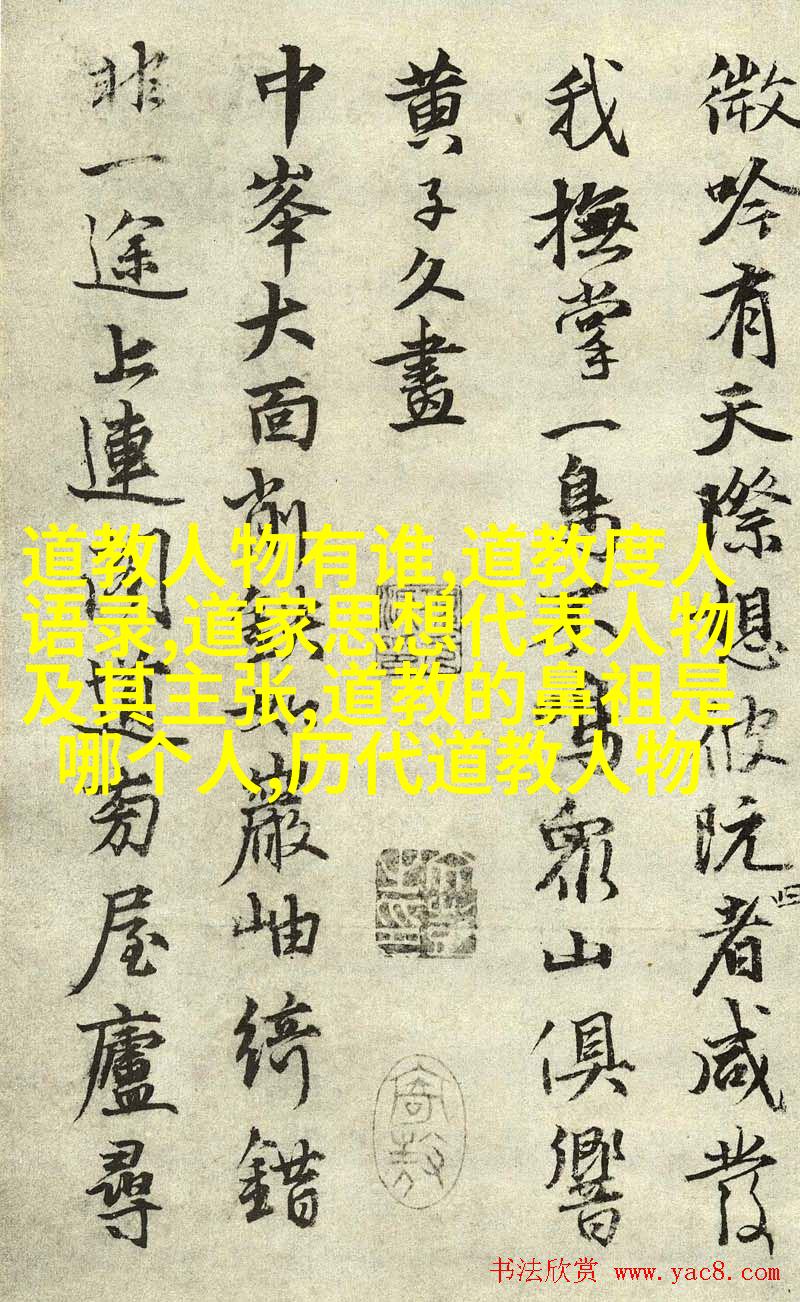 微吟有天際想彼阮者咸發
我撫掌一不衆山俱響
黄子久畫
中峯大面削鐵巖岫綺錯
非一途上連閣道旁屋廬尋
道教人物有谁,道教度人
语录,道家思想代表人物
及其主张,道教的鼻祖是
哪个人,历代道教人物
书法欣赏 www.yac8.com